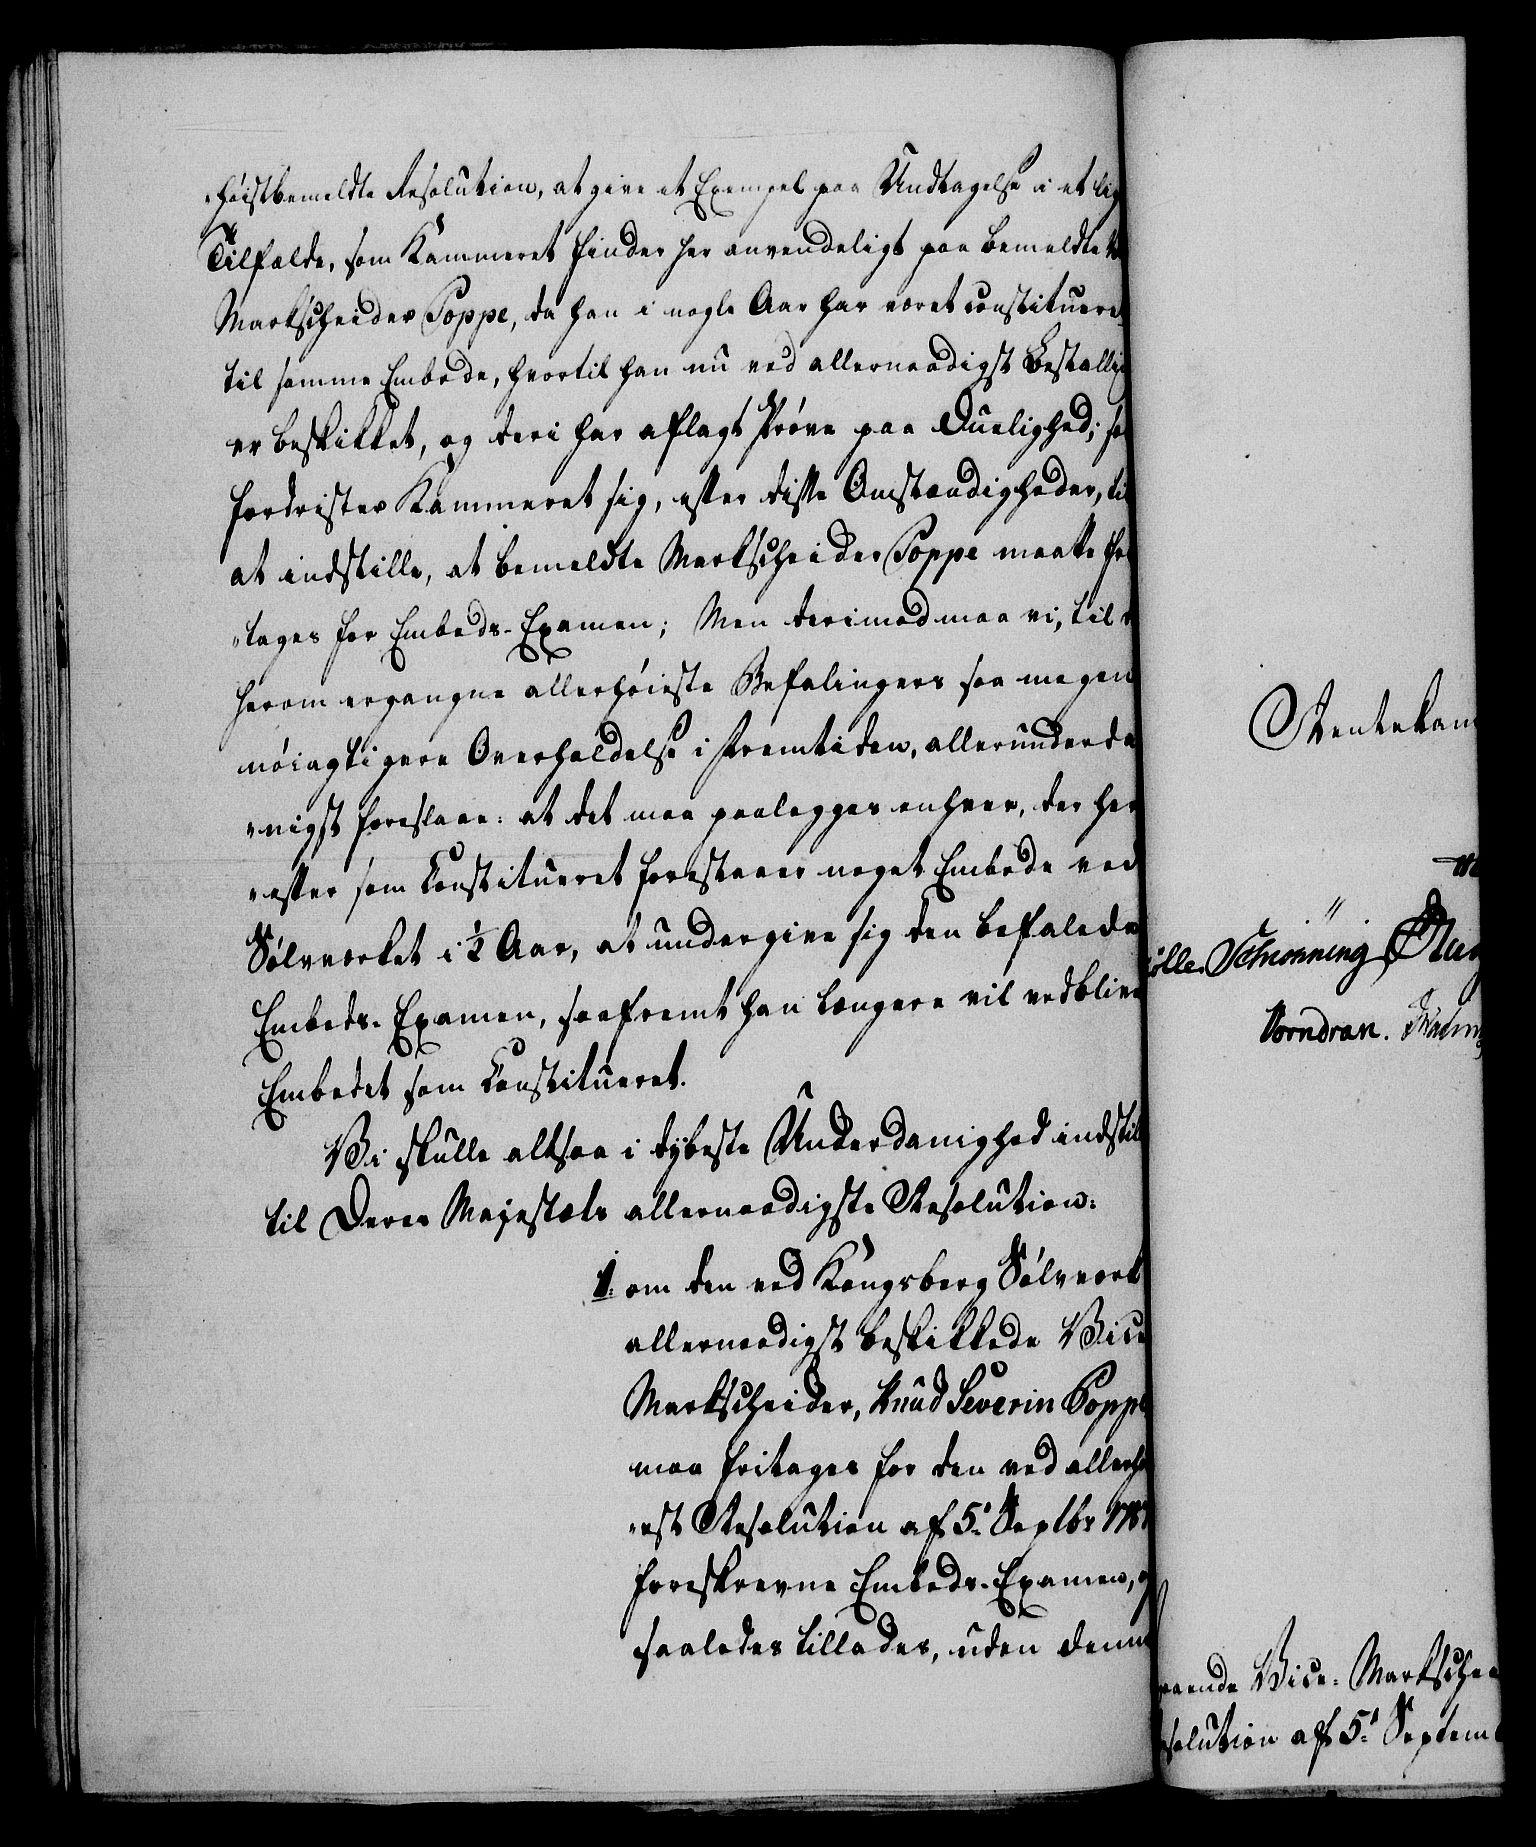 „høistbemeldte Resolution, at give et Exempel paa Undtagelse i et lig
Tilfælde, som Kammeret finder her anvendeligt paa bemeldte
Markscheider Poppe, da han i nogle Aar har været constitueret
til samme Embede, hvortil han nu ved allernaadigst Bestalling
er beskikket, og deri har aflagt Prøve paa Duelighed; saa
fordrister Kammeret sig, efter disse Omstændigheder, til
at indstille, at bemeldte Markscheider Poppe maatte fri
„tages for Embeds-Examen; Men derimod maa vi, til
herom ergangne allerhøieste Befalingers saa megen
nøiagtigere Overholdelse i Fremtiden, allerunderda
„nigst foreslaae: at det maa paalegges enhver, der her
„efter som Constitueret forestaaer noget Embede ved
Sølvverket i ½ Aar, at undergive sig den befalede
Embeds-Examen, saafremt han længere vil vedblive
Embedet som Constitueret.
Vi skulle altsaa i dybeste Underdanighed indstil
til Deres Majestæts allernaadigste Resolution:
1. om den ved Kongsberg Sølvverk
allernaadigst beskikkede Vice
Markscheider, Knud Severin Poppe
maa fritages for den ved allerhø
„est Resolution af 5. Septbr 178
foreskrevne Embeds-Examen, og
saaledes tillades, uden denne
Rentekam
ölle. Schiønning
Vorndran.
raaende Vice-Markschei
solution af 5. Septem